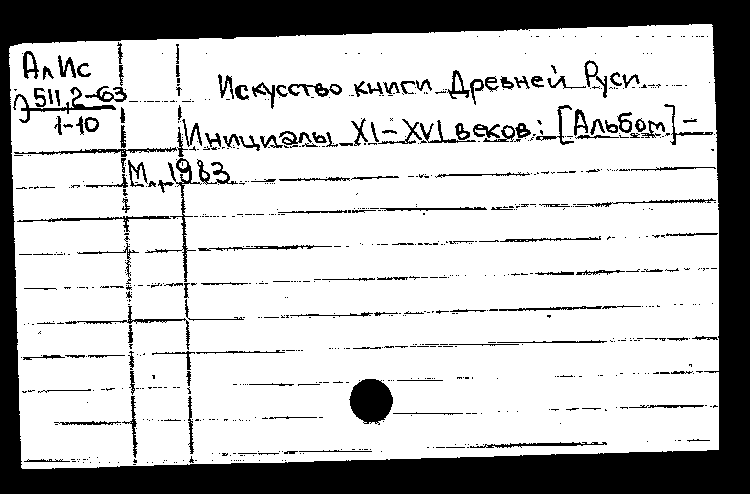 АлИс
Э 511,2-63
1-10
Искусство книги Древней Руси.
Инициалы XI-XVI веков: [Альбом] -
М., 1983